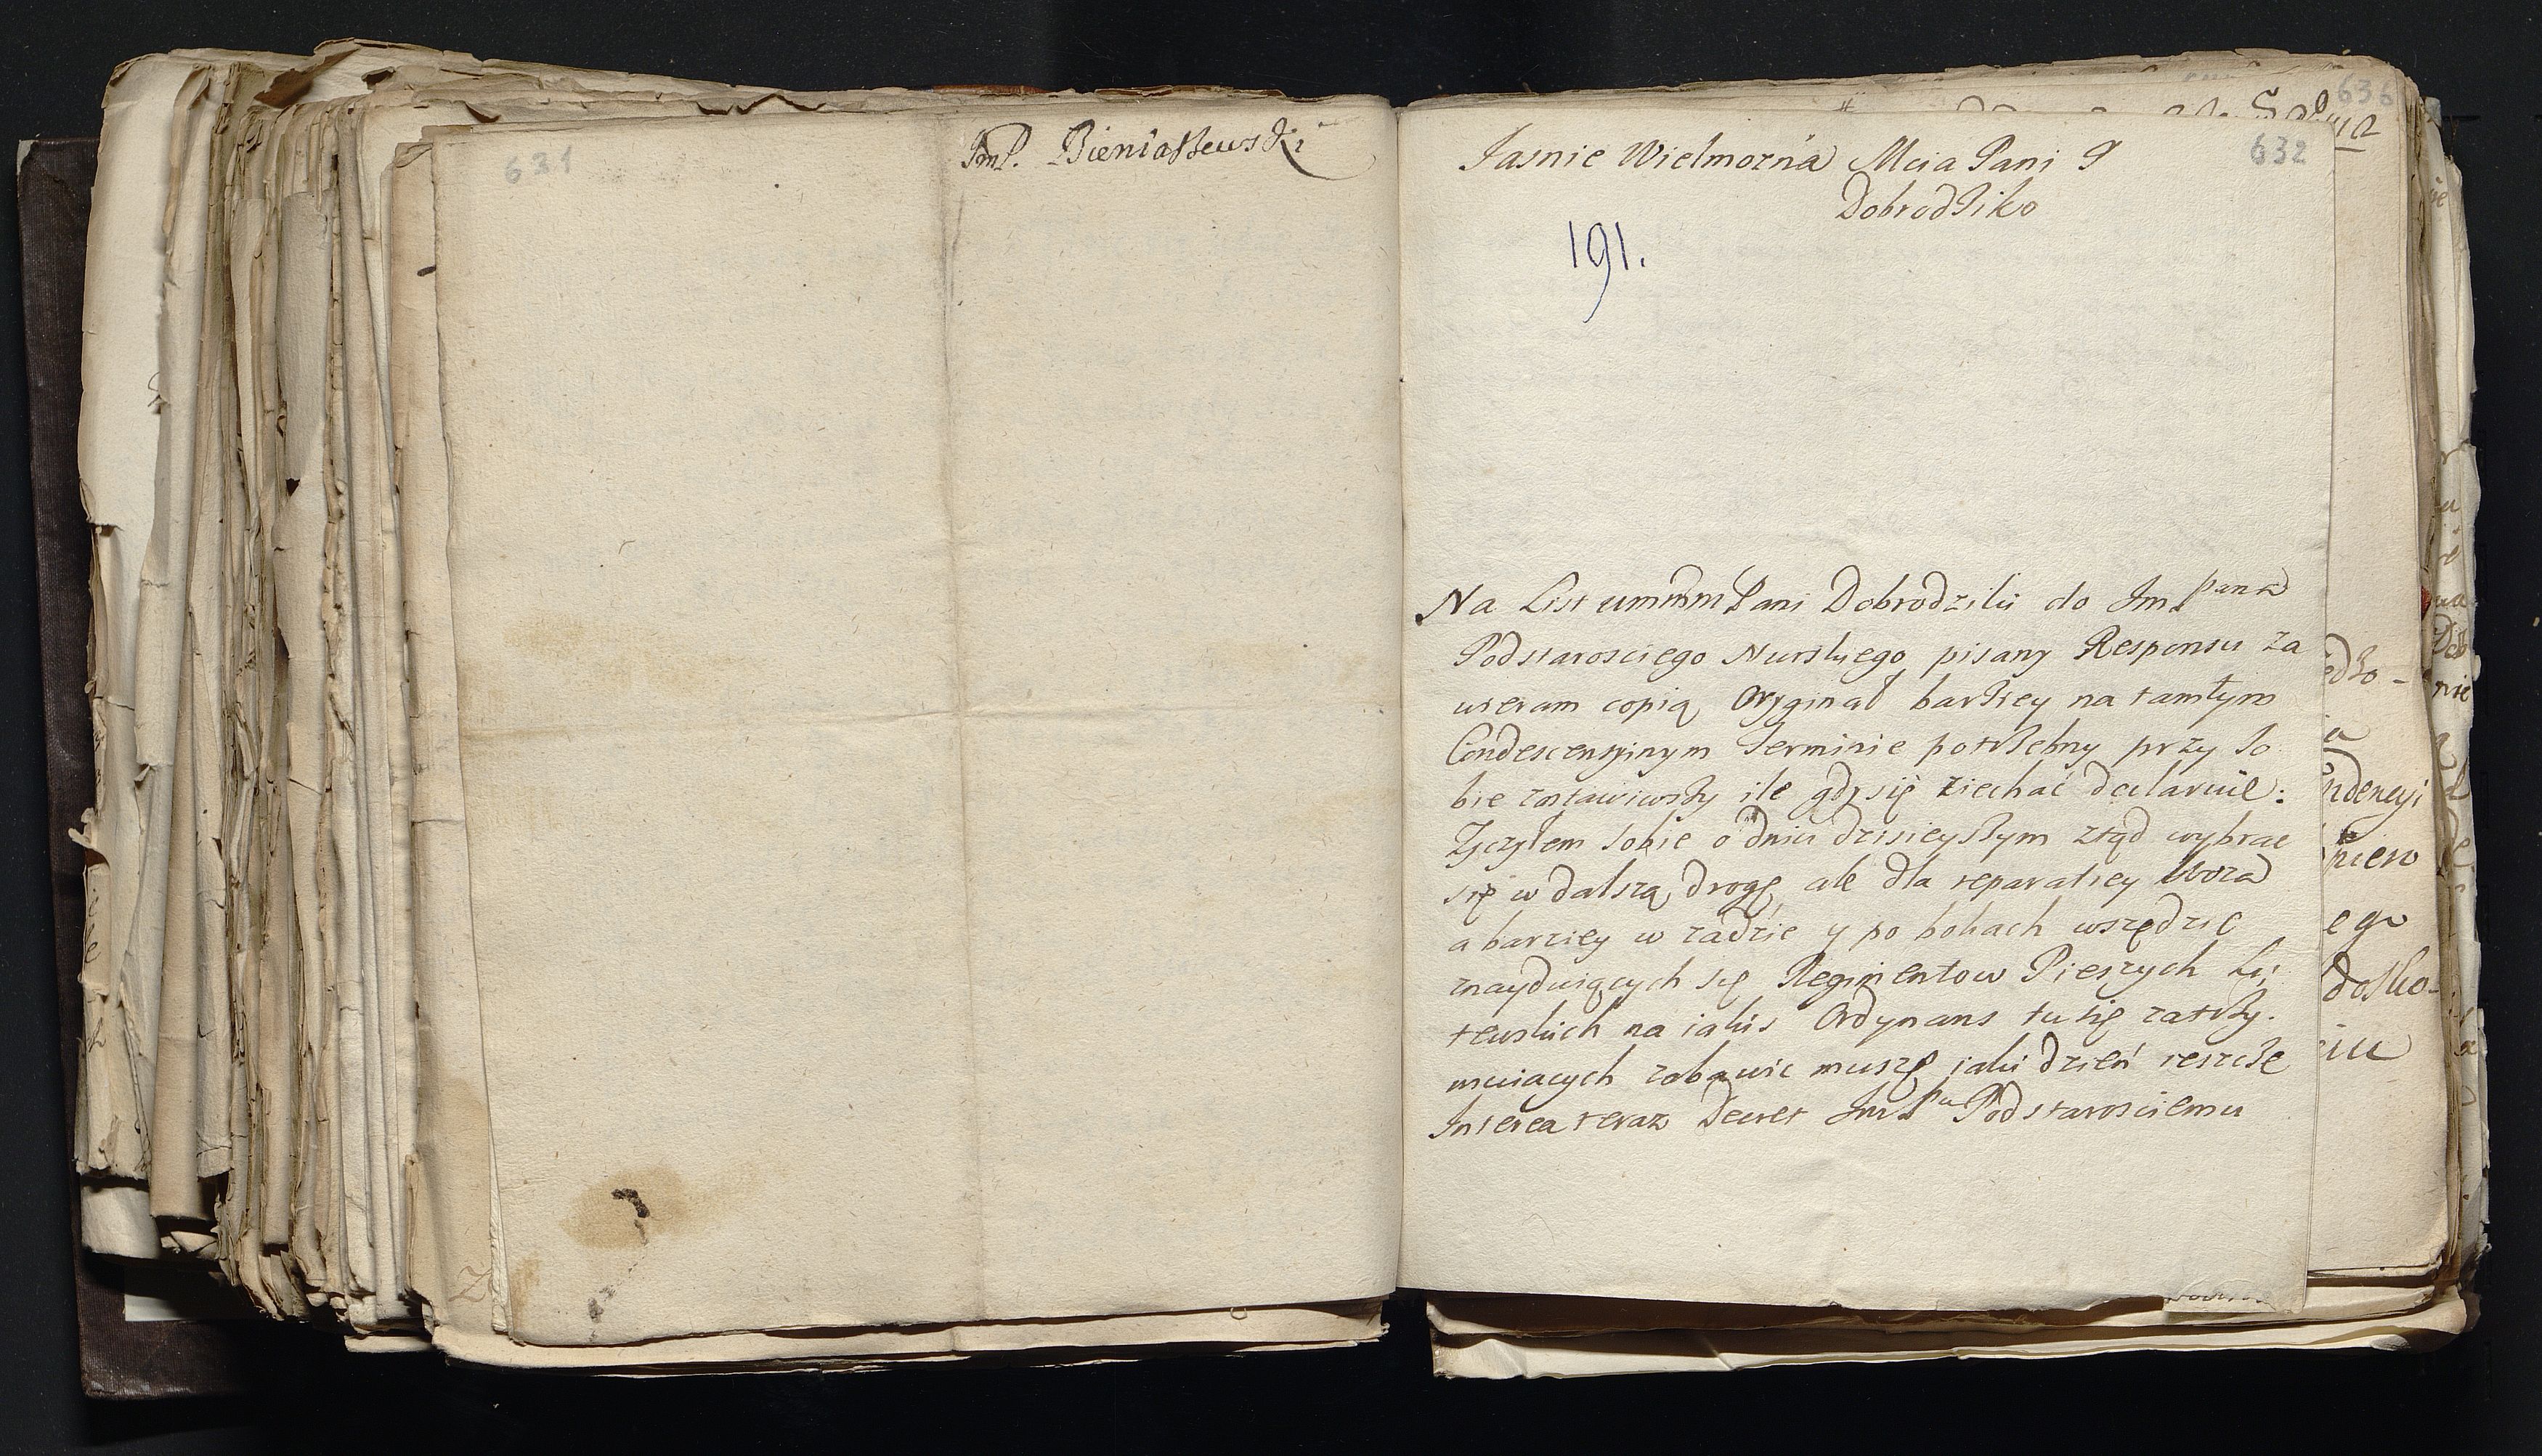 631
JmP. Bieniaszewski
636
632
Jasnie Wielmożna Mcia Pani y
Dobrodziko
191.
Na List ummm Pani Dobrodziki do Jm Pana
Podstarosciego Nurskiego pisany Responsu za
wieram copią Oryginał barziey na tamtym
Condescensyinym Terminie potrzebny przy so
bie zostawiwszy ile gdy się ziechać declaruie:
Zyczyłem sobie o dniu dzisieyszym ztąd wybrac
się w dalszą drogę, ale dla reparatiey woza
a barziey w zadzie y po bokach wszędzie
znayduiących się Regimentow Pieszych Li
tewskich na iakis Ordynans tu się zatrzy.
muiacych zabawic muszę iaki dzień ieszcze
Interea teraz Decret Jm Pu Podstarosciemu